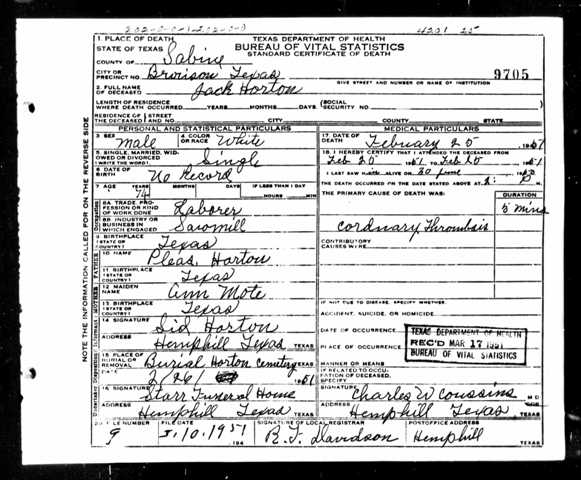 202-0-0-1-202-0-0 4201 25
1. PLACE OF DEATH TEXAS DEPARTMENT OF HEALTH
STATE OF TEXAS BUREAU OF VITAL STATISTICS
COUNTY OF Sabine STANDARD CERTIFICATE OF DEATH
CITY OR PRECINCT NO. Bronson Texas 9705
GIVE STREET AND NUMBER OR NAME OF INSTITUTION
2. FULL NAME OF DECEASED Jack Horton
LENGTH OF RESIDENCE WHERE DEATH OCCURRED YEARS MONTHS DAYS (SOCIAL SECURITY NO.
RESIDENCE OF THE DECEASED STREET AND NO. CITY COUNTY STATE
PERSONAL AND STATISTICAL PARTICULARS MEDICAL PARTICULARS
3. SEX Male 4. COLOR OR RACE White 17. DATE OF DEATH February 20
5. SINGLE, MARRIED, WIDOWED OR DIVORCED (WRITE THE WORD) Single 18. I HEREBY CERTIFY THAT I ATTENDED THE DECEASED FROM
Feb 20 TO Feb 20
6. DATE OF BIRTH No Record I LAST SAW ALIVE ON
7. AGE YEARS MONTHS DAYS IF LESS THAN 1 DAY THE DEATH OCCURRED ON THE DATE STATED ABOVE AT
74 HOURS MIN THE PRIMARY CAUSE OF DEATH WAS: DURATION
8A TRADE, PROFESSION OR KIND OF WORK DONE Laborer 5 mins
8B INDUSTRY OR BUSINESS IN WHICH ENGAGED Sawmill Cordnary Thrombsis
9. BIRTHPLACE (STATE OR COUNTRY) Texas CONTRIBUTORY CAUSES WERE
10. NAME Pleas. Horton
11. BIRTHPLACE (STATE OR COUNTRY) Texas
12. MAIDEN NAME Ann Mote
13. BIRTHPLACE (STATE OR COUNTRY) Texas IF NOT DUE TO DISEASE, SPECIFY WHETHER:
14. SIGNATURE Sid Horton ACCIDENT, SUICIDE, OR HOMICIDE
ADDRESS Hemphill Texas TEXAS DATE OF OCCURRENCE
15. PLACE OF BURIAL OR REMOVAL Burial Horton Cemetery TEXAS PLACE OF OCCURRENCE
TEXAS DEPARTMENT OF HEALTH
REC'D MAR 17 1951
BUREAU OF VITAL STATISTICS
DATE MANNER OR MEANS
IF RELATED TO OCCUPATION OF DECEASED, SPECIFY
16. SIGNATURE Starr Funeral Home SIGNATURE Charles W Coussins M D
ADDRESS Hemphill Texas TEXAS ADDRESS Hemphill Texas TEXAS
20. FILE NUMBER FILE DATE SIGNATURE OF LOCAL REGISTRAR POSTOFFICE ADDRESS
9 3.10.1951 194 R. T. Davidson Hemphill TEXAS
NOTE THE INFORMATION CALLED FOR ON THE REVERSE SIDE
FATHER
MOTHER
Informant